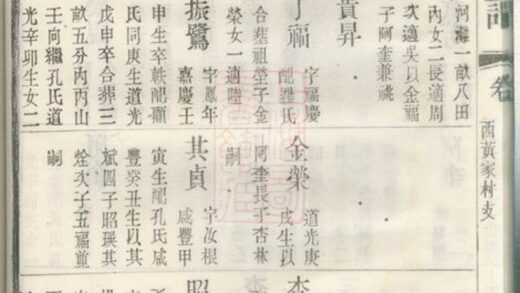 卷
西黃家村支
河灘一畝八田
內女二長適周
次適吳以金福
子阿奎兼祧
貴昇
福
字福慶
配羅氏
合葬祖塋子金
榮女一適陸
振鷺
字鳳年
嘉慶壬
申生卒軼配顧
氏同庚生道光
戊申卒合葬三
畝五分內丙山
壬向繼孔氏道
光辛卯生女二
金榮
道光庚
戌生以
阿奎長子杏林
嗣
其貞
字汝根
咸豐甲
寅生配孔氏咸
豐癸丑生以其
斌四子昭瑛其
烇次子五福並
嗣
昭